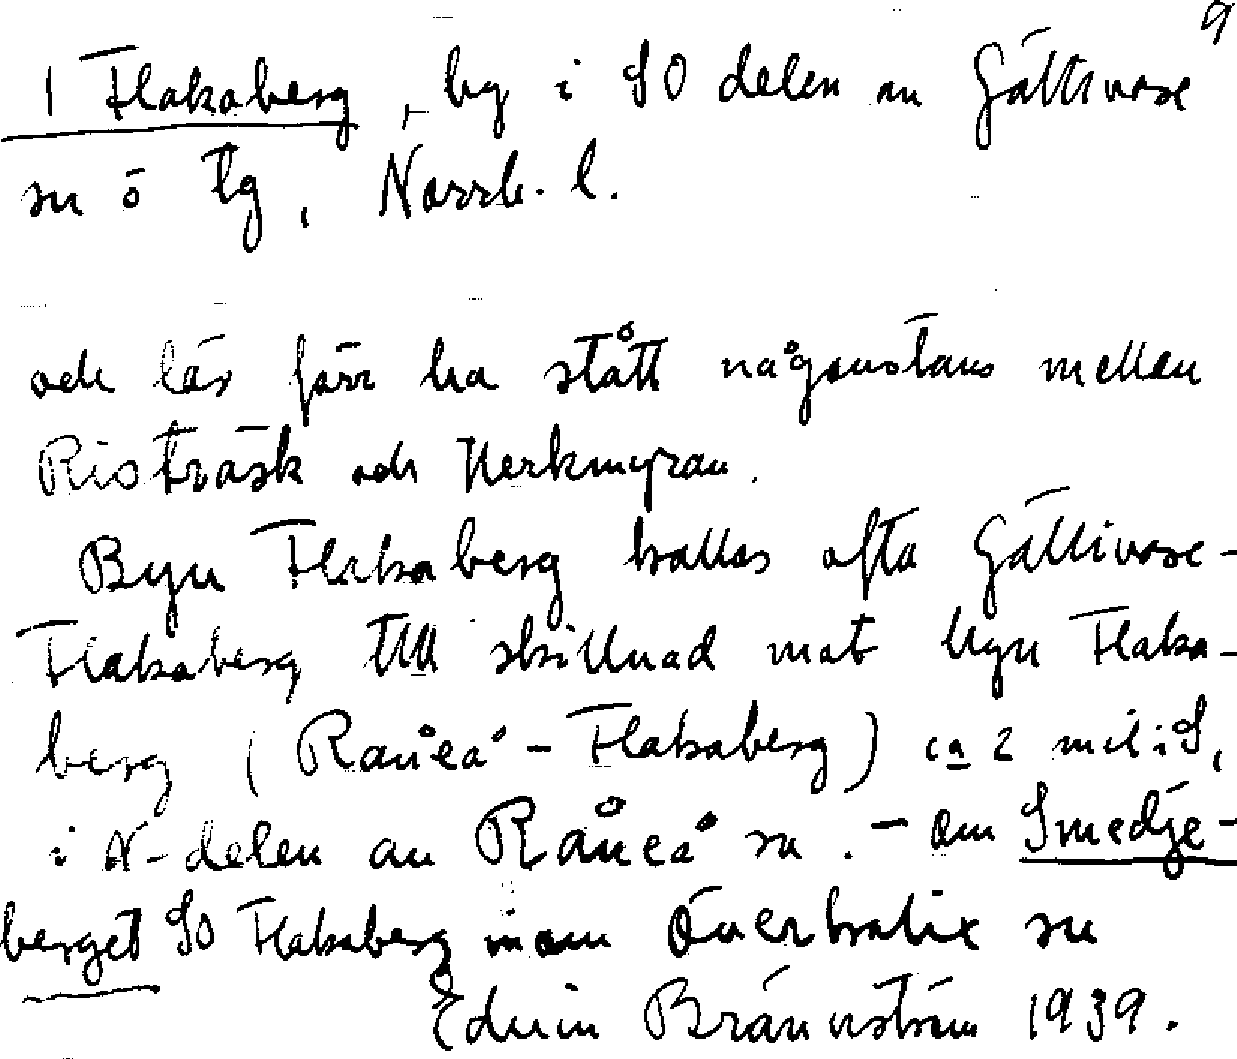 9
1 Flakaberg, by i SO delen av Gällivare
sn o tg, Norrb. l.
och lär förr ha stått någonstans mellan
Risträsk och Verkmyran.
Byn Flakaberg kallas ofta Gällivare-
Flakaberg till skillnad mot byn Flaka-
berg (Råneå-Flakaberg) ca 2 mil i S,
i N-delen av Råneå sn. - Om Smedje-
berget SO Flakaberg inom Överkalix sn
Edvin Brännström 1939.